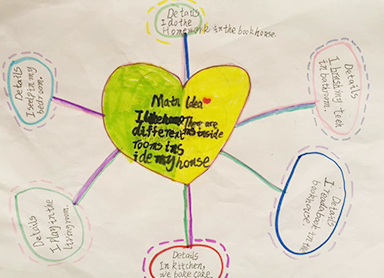 Details
I do the
Homework in the bookhouse.
Details
I sleep in my
bedroom.
Details
I brushing teet
in bathroom.
Main Idea
There are
different inside
rooms ins
ide my house
Details
I play in the
living room.
Details
book in the
bookhouse.
Details
In kitchen,
we bake cake.